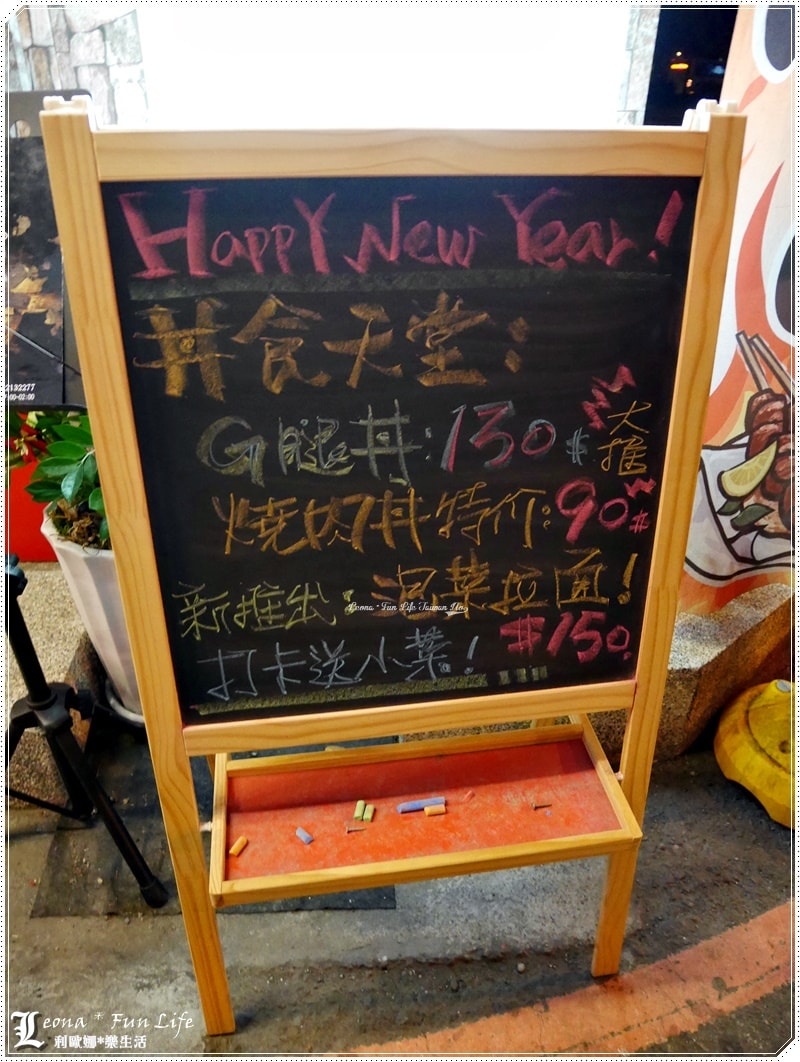 Happy New Year!
丼食天堂:
G腿丼:130# 大推
燒肉丼特价:90#
新推出:泡菜拉面!
#150.
打卡送小菜!
2132277
00-02:00
Leona * Fun Life
利歐娜*樂生活